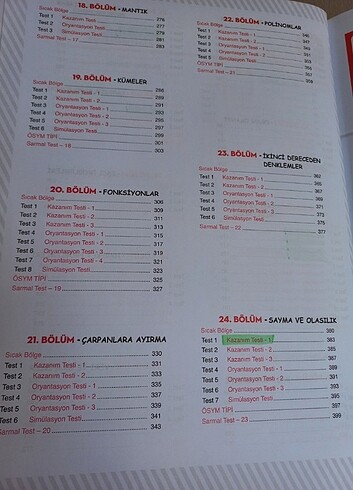 18. BÖLÜM - MANTIK
Sıcak Bölge 276
Test 1 Kazanım Testi 277
Simülasyon Testi
Sarmal Test – 17 283
19. BÖLÜM - KÜMELER
Sıcak Bölge 288
Test 1 Kazanım Testi - 1 289
Test 2 Kazanım Testi - 2 291
Test 3 Oryantasyon Testi - 1 293
Test 4 Oryantasyon Testi - 2 295
Test 5 Oryantasyon Testi - 3 297
Test 6 Simülasyon Testi 299
ÖSYM TİPİ 301
Sarmal Test – 18 303
20. BÖLÜM - FONKSİYONLAR
Sıcak Bölge 308
Test 1 Kazanım Testi - 1 309
Test 2 Kazanım Testi - 2 311
Test 3 Kazanım Testi - 3 313
Test 4 Oryantasyon Testi - 1 315
Test 5 Oryantasyon Testi - 2 317
Test 6 Oryantasyon Testi - 3 319
Test 7 Oryantasyon Testi - 4 321
Test 8 Simülasyon Testi 323
ÖSYM TİPİ 325
Sarmal Test – 19 327
21. BÖLÜM - ÇARPANLARA AYIRMA
Sıcak Bölge 330
Test 1 Kazanım Testi - 1 331
Test 2 Kazanım Testi - 2 333
Test 3 Oryantasyon Testi - 1 335
Test 4 Oryantasyon Testi - 2 337
Test 5 Oryantasyon Testi - 3 339
Test 6 Simülasyon Testi 341
Sarmal Test – 20 343
22. BÖLÜM - POLİNOMLAR
Sıcak Bölge 346
Test 1 Kazanım Testi - 1 347
Test 2 Kazanım Testi - 2
Test 3 Oryantasyon Testi - 1
Test 4 Oryantasyon Testi - 2
Test 5 Oryantasyon Testi - 3
Test 6 Simülasyon Testi
ÖSYM TİPİ
Sarmal Test – 21
23. BÖLÜM - İKİNCİ DERECEDEN
DENKLEMLER
Sıcak Bölge 362
Test 1 Kazanım Testi - 1
Test 2 Kazanım Testi - 2 365
Test 3 Oryantasyon Testi - 1
Test 4 Oryantasyon Testi - 2
Test 5 Oryantasyon Testi - 3
Test 6 Simülasyon Testi 375
Sarmal Test – 22 377
24. BÖLÜM - SAYMA VE OLASILIK
Sıcak Bölge 380
Test 1 Kazanım Testi - 1 383
Test 2 Kazanım Testi - 2 385
Test 3 Kazanım Testi - 3 387
Test 4 Oryantasyon Testi - 1 389
Test 5 Oryantasyon Testi - 2 391
Test 6 Oryantasyon Testi - 3 393
Test 7 Simülasyon Testi 395
ÖSYM TİPİ 397
Sarmal Test – 23 399